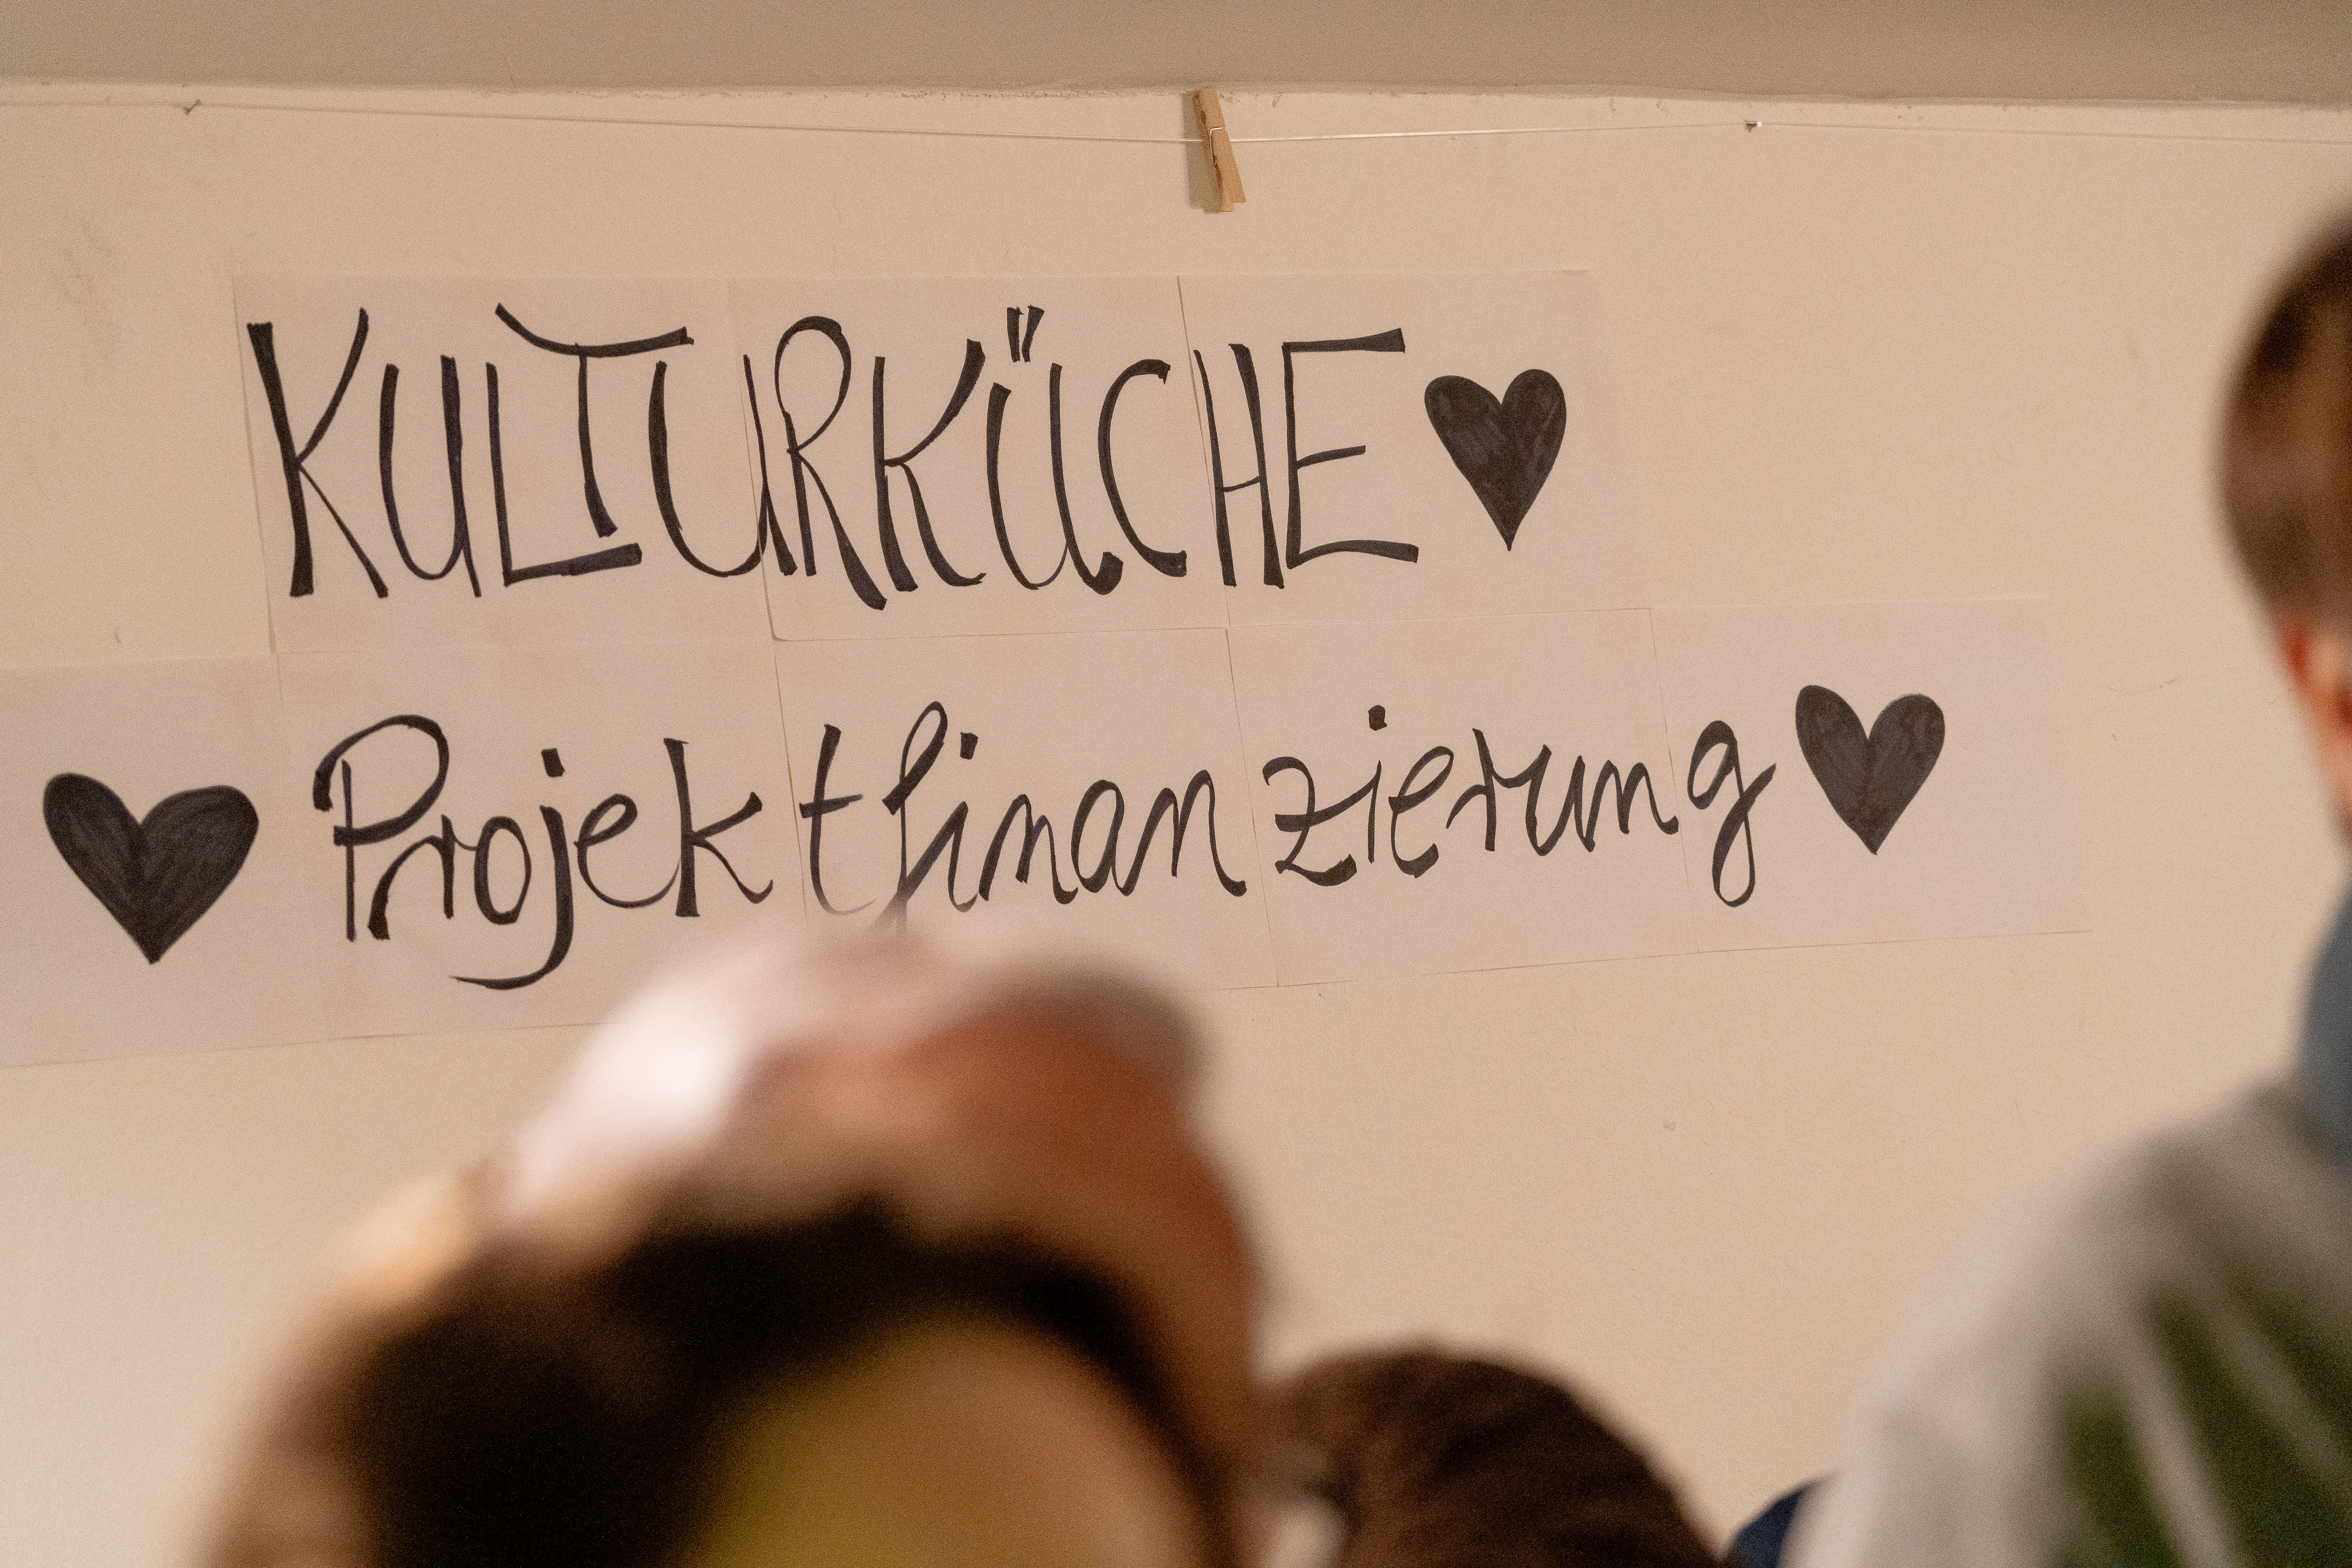 KULTURKÜCHE ♥
♥ Projektfinanzierung ♥